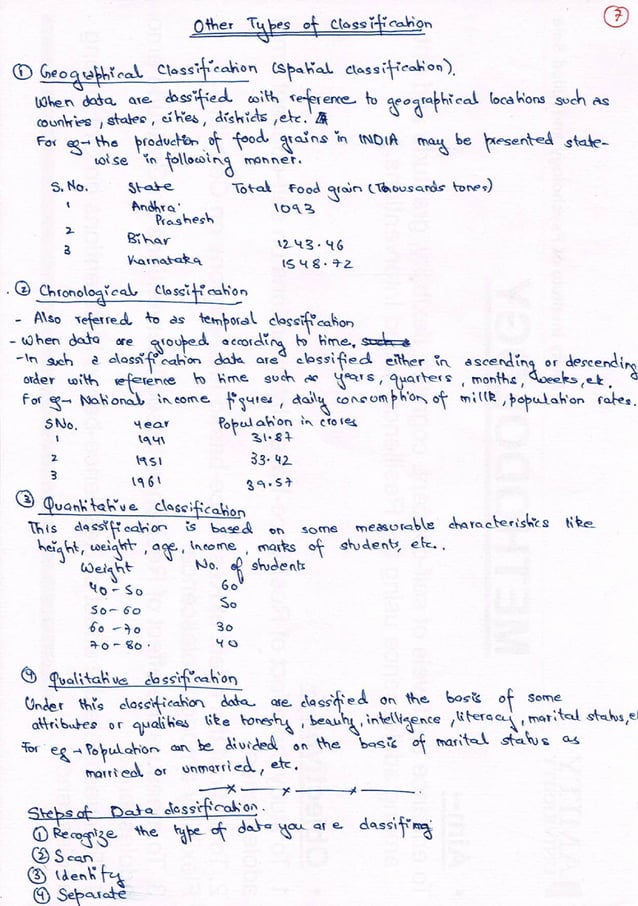 7
Other Types of Classification
① Geographical Classification (Spatial classification).
When data are classified with reference to geographical locations such as
countries, states, cities, districts, etc.
For eg → the production of food grains in INDIA may be presented state-
wise in following manner.
S. No. State Total Food grain (Thousands tones)
1 Andhra 1093
Prashesh
2 Bihar 1243.46
3 Karnataka 1548.72
② Chronological Classification
- Also referred to as temporal classification
- When data are grouped according to time. such as
- In such a classification data are classified either in ascending or descending
order with reference to time such as years, quarters, months, weeks, etc.
For eg → National income figures, daily consumption of millk, population rates.
S No. Year Population in crores
1 1941 31.87
2 1951 33.42
3 1961 39.57
③ Quantitative classification
This classification is based on some measurable characteristics like
height, weight, age, income, marks of students, etc..
Weight No. of students
40-50 60
50-60 50
60-70 30
70-80. 40
④ Qualitative classification
Under this classification data are classified on the basis of some
attributes or qualities like honesty, beauty, intelligence, literacy, marital status, e
For eg → Population can be divided on the basis of marital status as
married or unmarried, etc.
Steps of Data classification.
① Recognize the type of data you are classifing
② Scan
③ Identify
④ Separate
METHODOLOGY